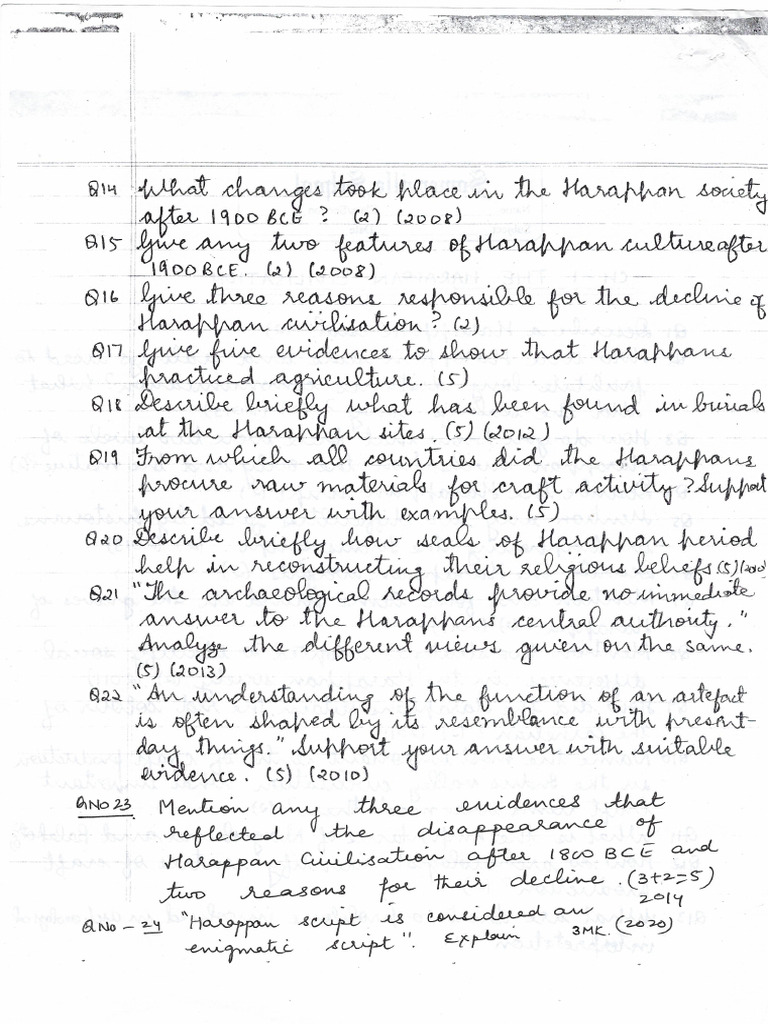 Q14 What changes took place in the Harappan society
after 1900 BCE ? (2) (2008)
Q15 Give any two features of Harappan culture after
1900 BCE. (2) (2008)
Q16 Give three reasons responsible for the decline of
Harappan civilisation? (2)
Q17 Give five evidences to show that Harappans
practiced agriculture. (5)
Q18 Describe briefly what has been found in burials
at the Harappan sites. (5) (2012)
Q19 From which all countries did the Harappans
procure raw materials for craft activity ? Support
your answer with examples. (5)
Q20 Describe briefly how seals of Harappan period
help in reconstructing their religious beliefs (5)
Q21 "The archaeological records provide no immediate
answer to the Harappans central authority."
Analyse the different views given on the same.
(5) (2013)
Q22 "An understanding of the function of an artefact
is often shaped by its resemblance with present-
day things." Support your answer with suitable
evidence. (5) (2010)
QNO 23 Mention any three evidences that
reflected the disappearance of
Harappan Civilisation after 1800 BCE and
two reasons for their decline. (3+2=5)
2014
QNo - 24 "Harappan script is considered an
enigmatic script". Explain 3MK. (2020)